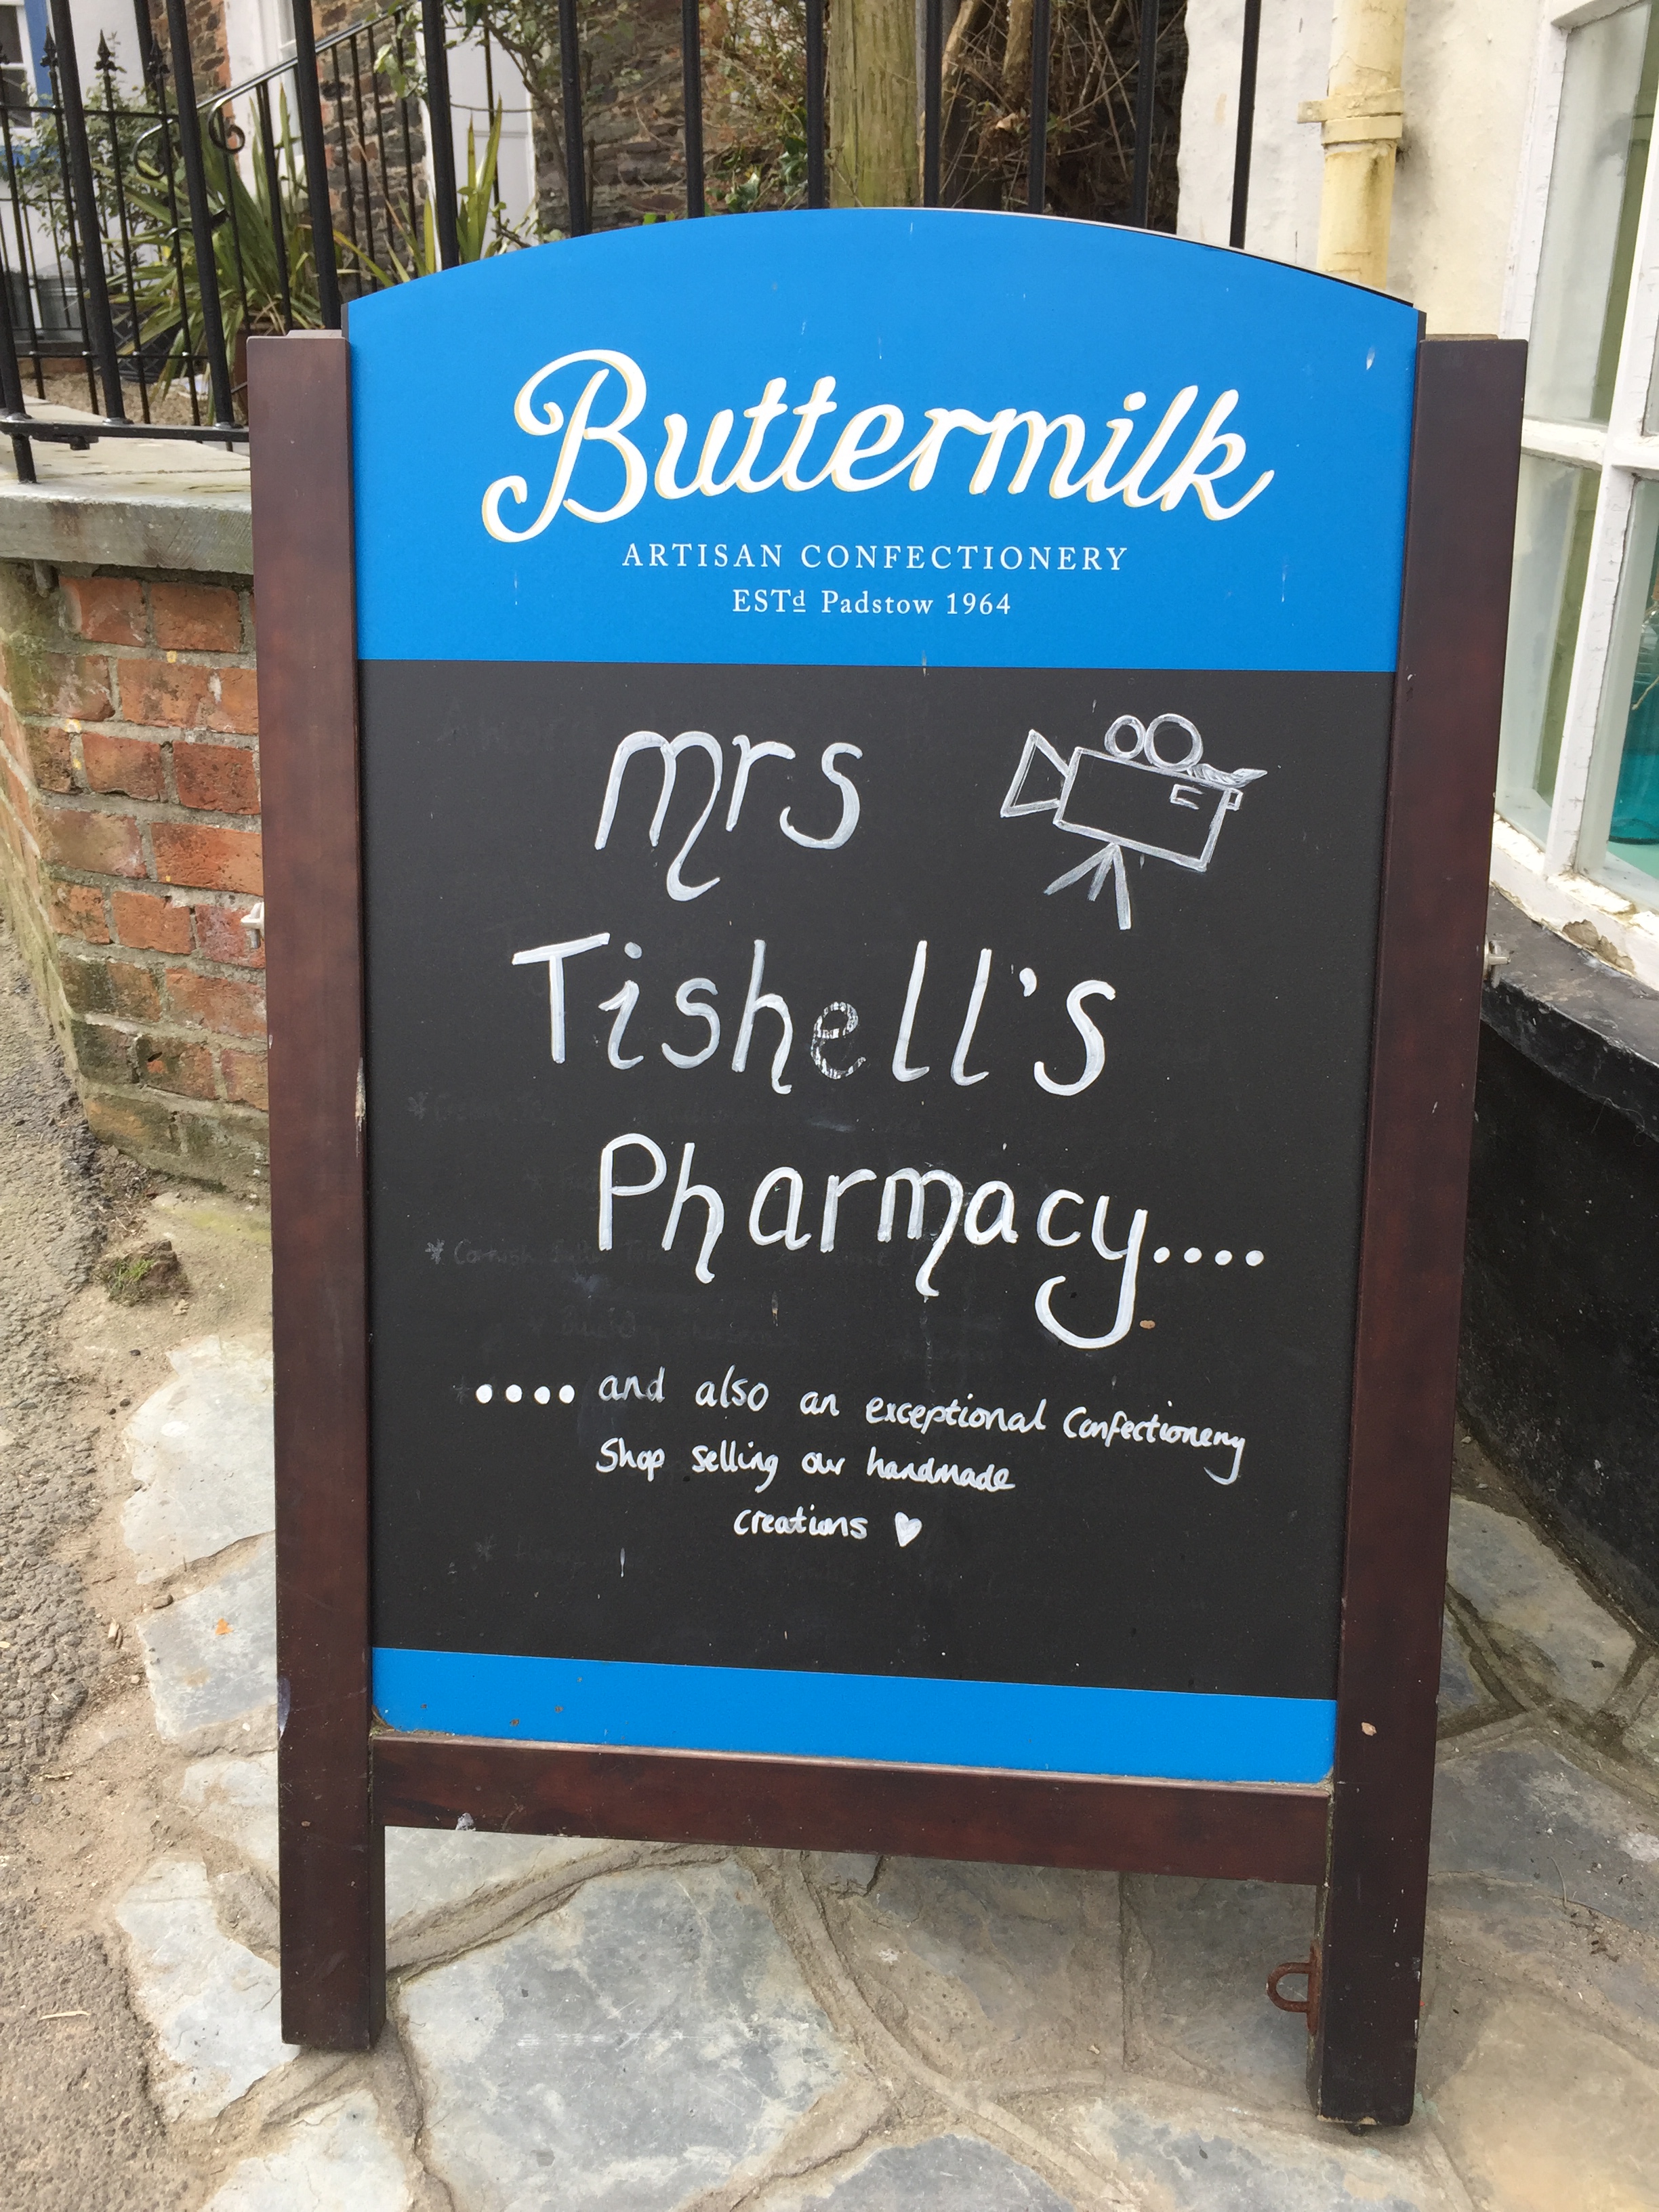 Buttermilk
ARTISAN CONFECTIONERY
ESTd Padstow 1964
Mrs
Tishell's
Pharmacy....
.... and also an exceptional Confectionery
Shop selling our handmade
creations